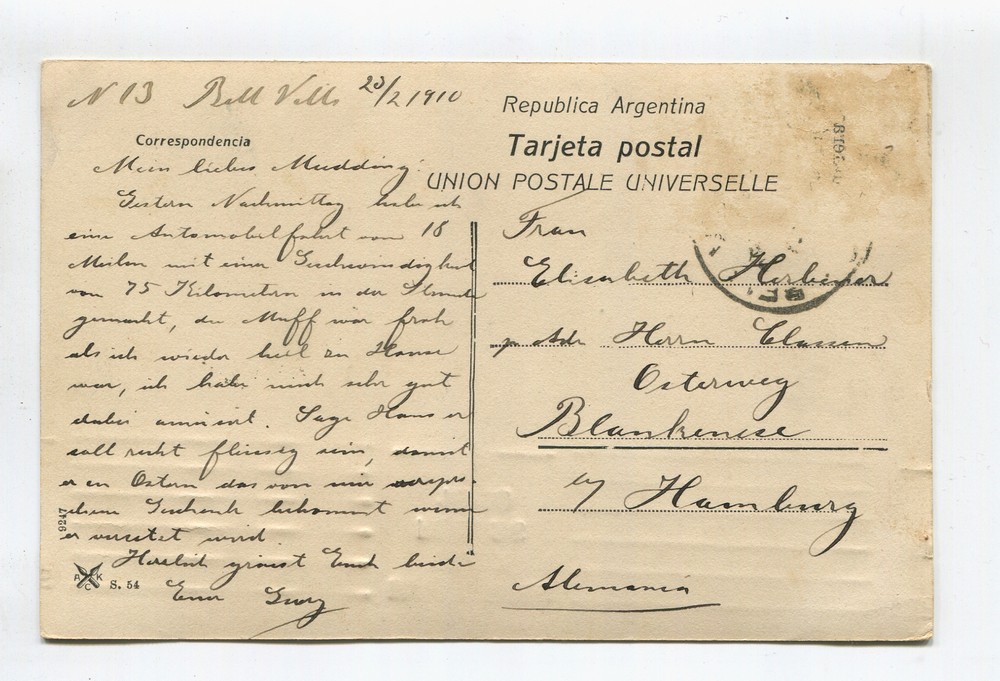 N 13 Bell Ville 23/2 1910
Republica Argentina
Correspondencia
Tarjeta postal
UNION POSTALE UNIVERSELLE
Mein liebes Mudding!
Gestern Nachmittag habe ich
eine Automobilfahrt von 18
Meilen mit einer Geschwindigkeit
von 75 Kilometern in der Stunde
gemacht, der Muff war froh
als ich wieder heil zu Hause
war, ich habe mich sehr gut
dabei amüsirt. Sage Hans er
soll recht fleissig sein, damit
er zu Ostern das von mir verspro-
chene Geschenk bekommt wenn
er versetzt wird.
Herzlich grüsst Euch beide
Euer Georg
9247
AKC
S. 54
Frau
Elisabeth
p Adr Herrn Classen
Osterweg
Blankenese
a/ Hamburg
Alemania